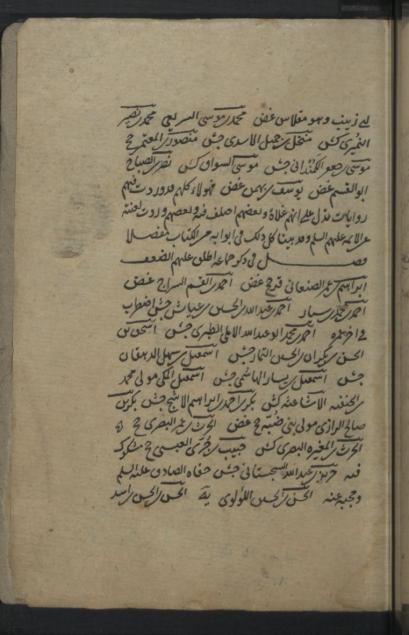 ابى زينب وهو مقلاص غض محمد بن موسى السريعى محمد بن نصير
النميرى كش منخل بن جميل الاسدى جش منصور بن المعتمر جخ
موسى بن جعفر الكمنذانى جش موسى السواق كش نصر بن الصباح
ابو القسم غض يوسف بن بهمن غض فهؤلاء كلهم قد وردت فيهم
روايات تدل على انهم غلاة وبعضهم اختلف فيه وبعضهم وردت لعنته
عن الائمة عليهم السلم وقد بينا كل ذلك فى ابوابه من الكتاب مفصلا
فصل فى ذكر جماعة اطلق عليهم الضعف
ابراهيم بن عمر الصنعانى ق جخ غض احمد بن القسم السراج غض
احمد بن محمد بن سيار احمد بن عبد الله بن الحسين بن عياش جش اضطرب
فى اخر عمره احمد بن محمد ابو عبد الله الاملى الطبرى جش اسحق بن
الحسن بن بكران بن الحسن التمار جش اسمعيل بن سهل الدهقان
جش اسمعيل بن يسار الهاشمى جش اسمعيل المكى مولى محمد
بن الحنفية كش بكر بن احمد بن ابراهيم الاشج جش بكر بن
صالح الرازى مولى بنى ضبة جخ غض الحرث بن عمر البصرى جخ
الحرث بن المغيرة البصرى كش حبيب بن جرى العبسى جخ مشكوك
فيه حريز بن عبد الله السجستانى جش جفاه الصادق عليه السلم
وحجبه عنه الحسن بن الحسين اللؤلوى يه الحسن بن الحسن بن اسد